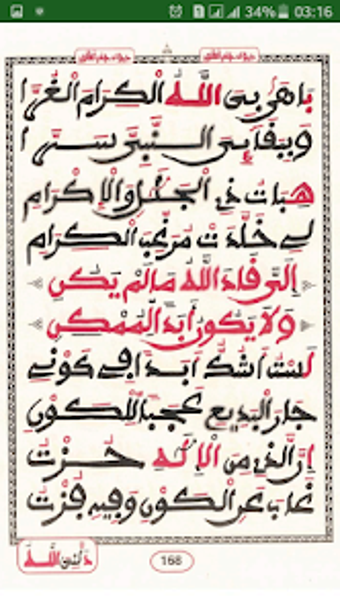 34% 03:16
باهى بي الله الكرام الغرا
النبي سرا
هبات ذي الجلال والإكرام
لي خلدت الكرام
إلى قاد الله ما لم يكن
ولا يكون أبدا لممكن
لست أشك أبدا في كوني
جار البديع عجبا للكون
إن الذي من الإله حزت
غاب عن الكون وفيه فزت
الله
168